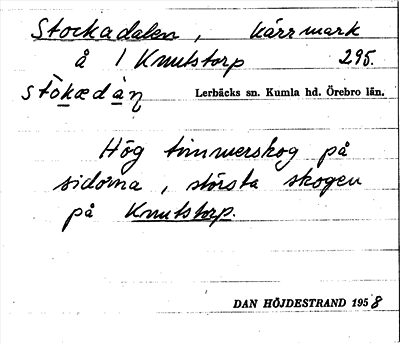 Stockadalen, kärrmark
å 1 Knutstorp 295.
stòkædàn̥ Lerbäcks sn. Kumla hd. Örebro län.
Hög timmerskog på
sidorna, största skogen
på Knutstorp.
DAN HÖJDESTRAND 1958